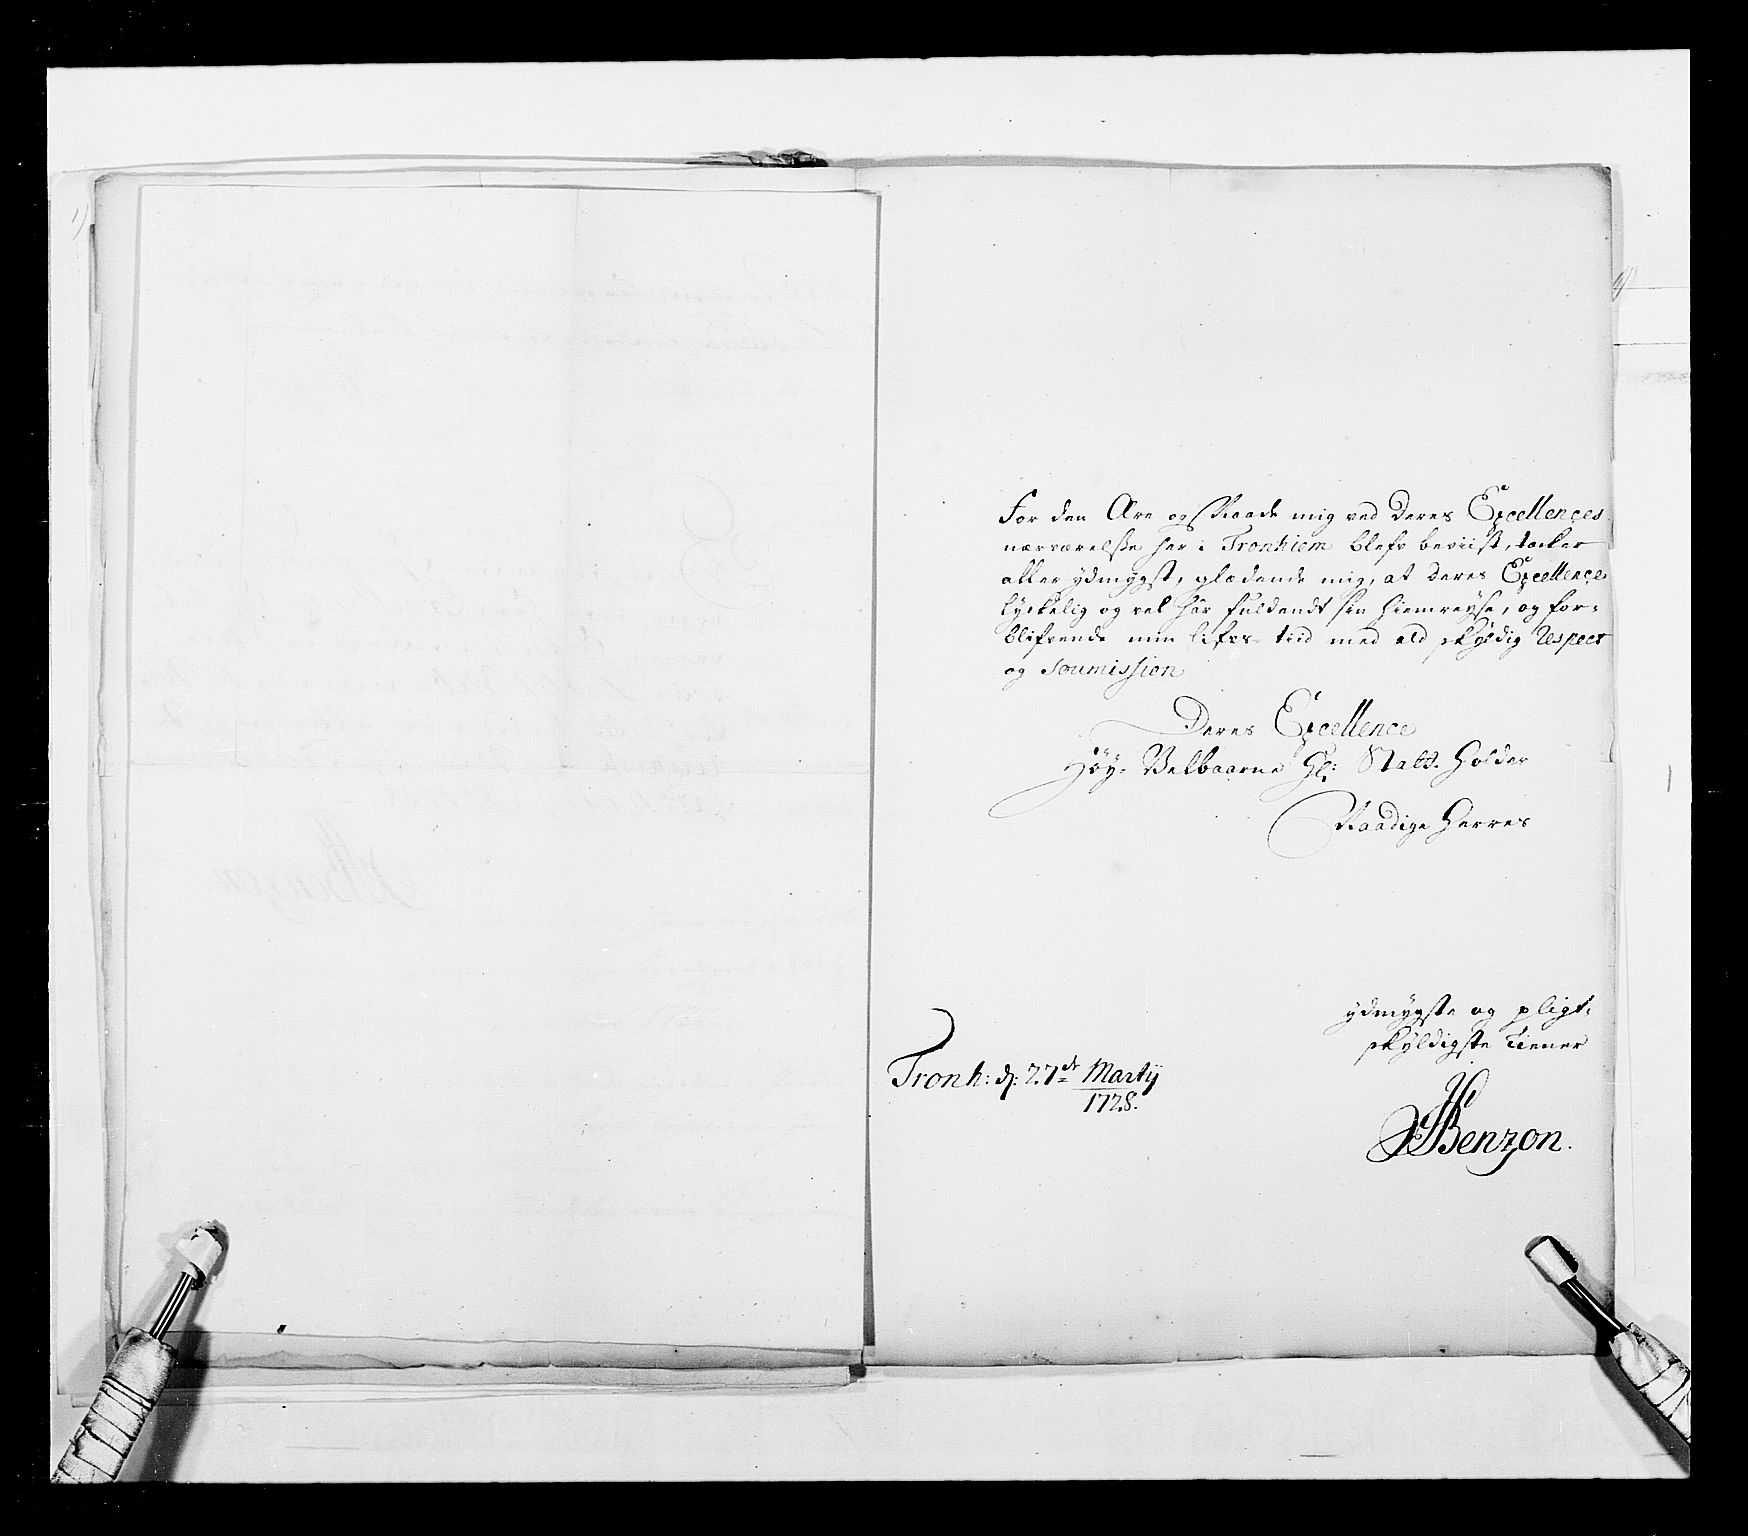 For den Ære og Naade mig ved Deres Excellences
nærværelse her i Tronhiem blefv beviist, tacker
aller ydmygst, glædende mig, at Deres Excellence
lyckelig og vel har fuldendt sin hiemreyse, og for-
blifvende min lifvs-tiid med ald skyldig respect
og soumission
Deres Excellence
Höy-Velbaarne Hr: Stadt-Holder
Naadige Herres
ydmygste og pligt-
skyldigste Tiener
Tronh: d: 27de Marty
1728.
Benzon.